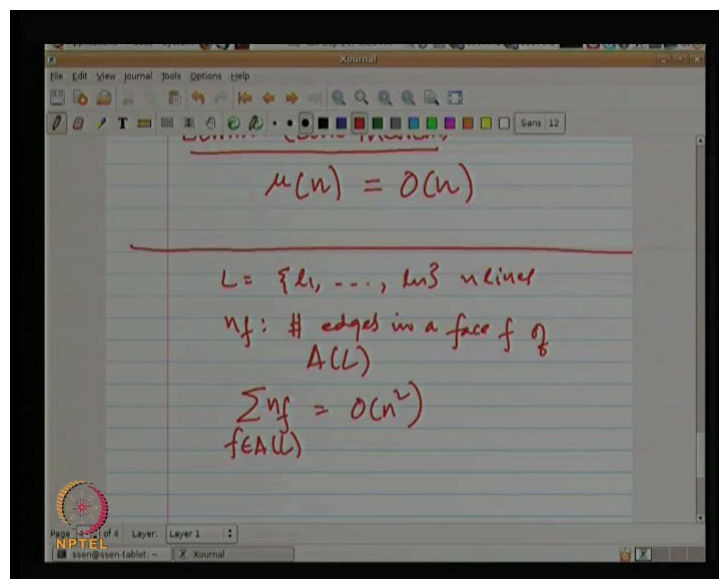 Xournal
File Edit View Journal Tools Options Help
Sans 12
μ(n) = O(n)
L = {l1, ----, ln} n lines
nf : # edges in a face f of
A(L)
∑nf = O(n²)
f∈A(L)
Page of 4 Layer: Layer 1
NPTEL
ssen@ssen-tablet: ~ Xournal